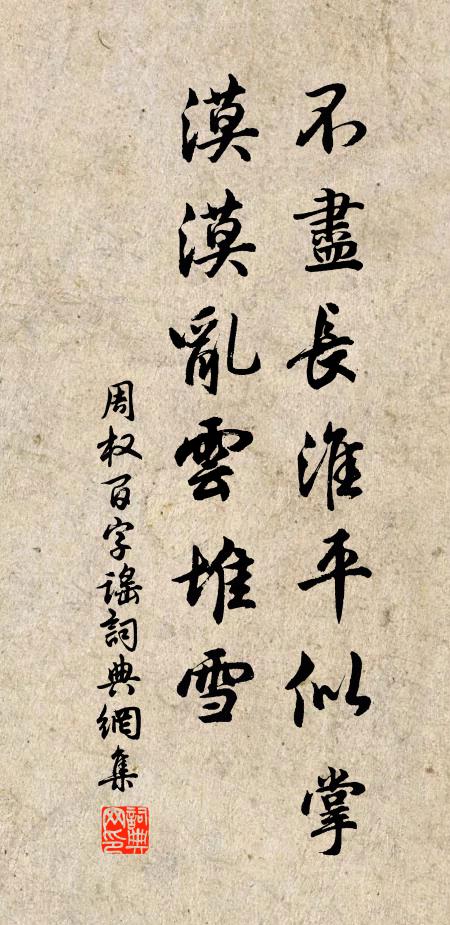 不盡長淮平似掌
漠漠亂雲堆雪
周权百字謠詞典網集
詞典
网印